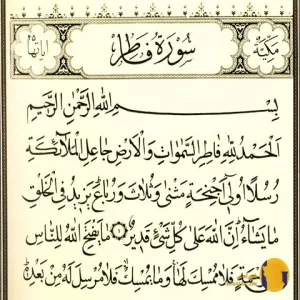 مكية
سورة فاطر
آياتها ٤٥
بسم الله الرحمن الرحيم
الحمد لله فاطر السموات والأرض جاعل الملائكة
رسلا أولى أجنحة مثنى وثلاث ورباع يزيد في الخلق
ما يشاء إن الله على كل شيء قدير ما يفتح الله للناس
فلا ممسك لها وما يمسك فلا مرسل له من بعده